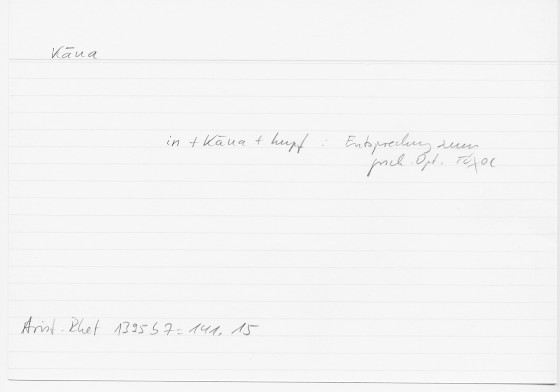 Kāna
in + Kāna + Impf : Entsprechung zum
griech. Opt. τύχοι
Arist. Rhet 1395b7 = 141, 15